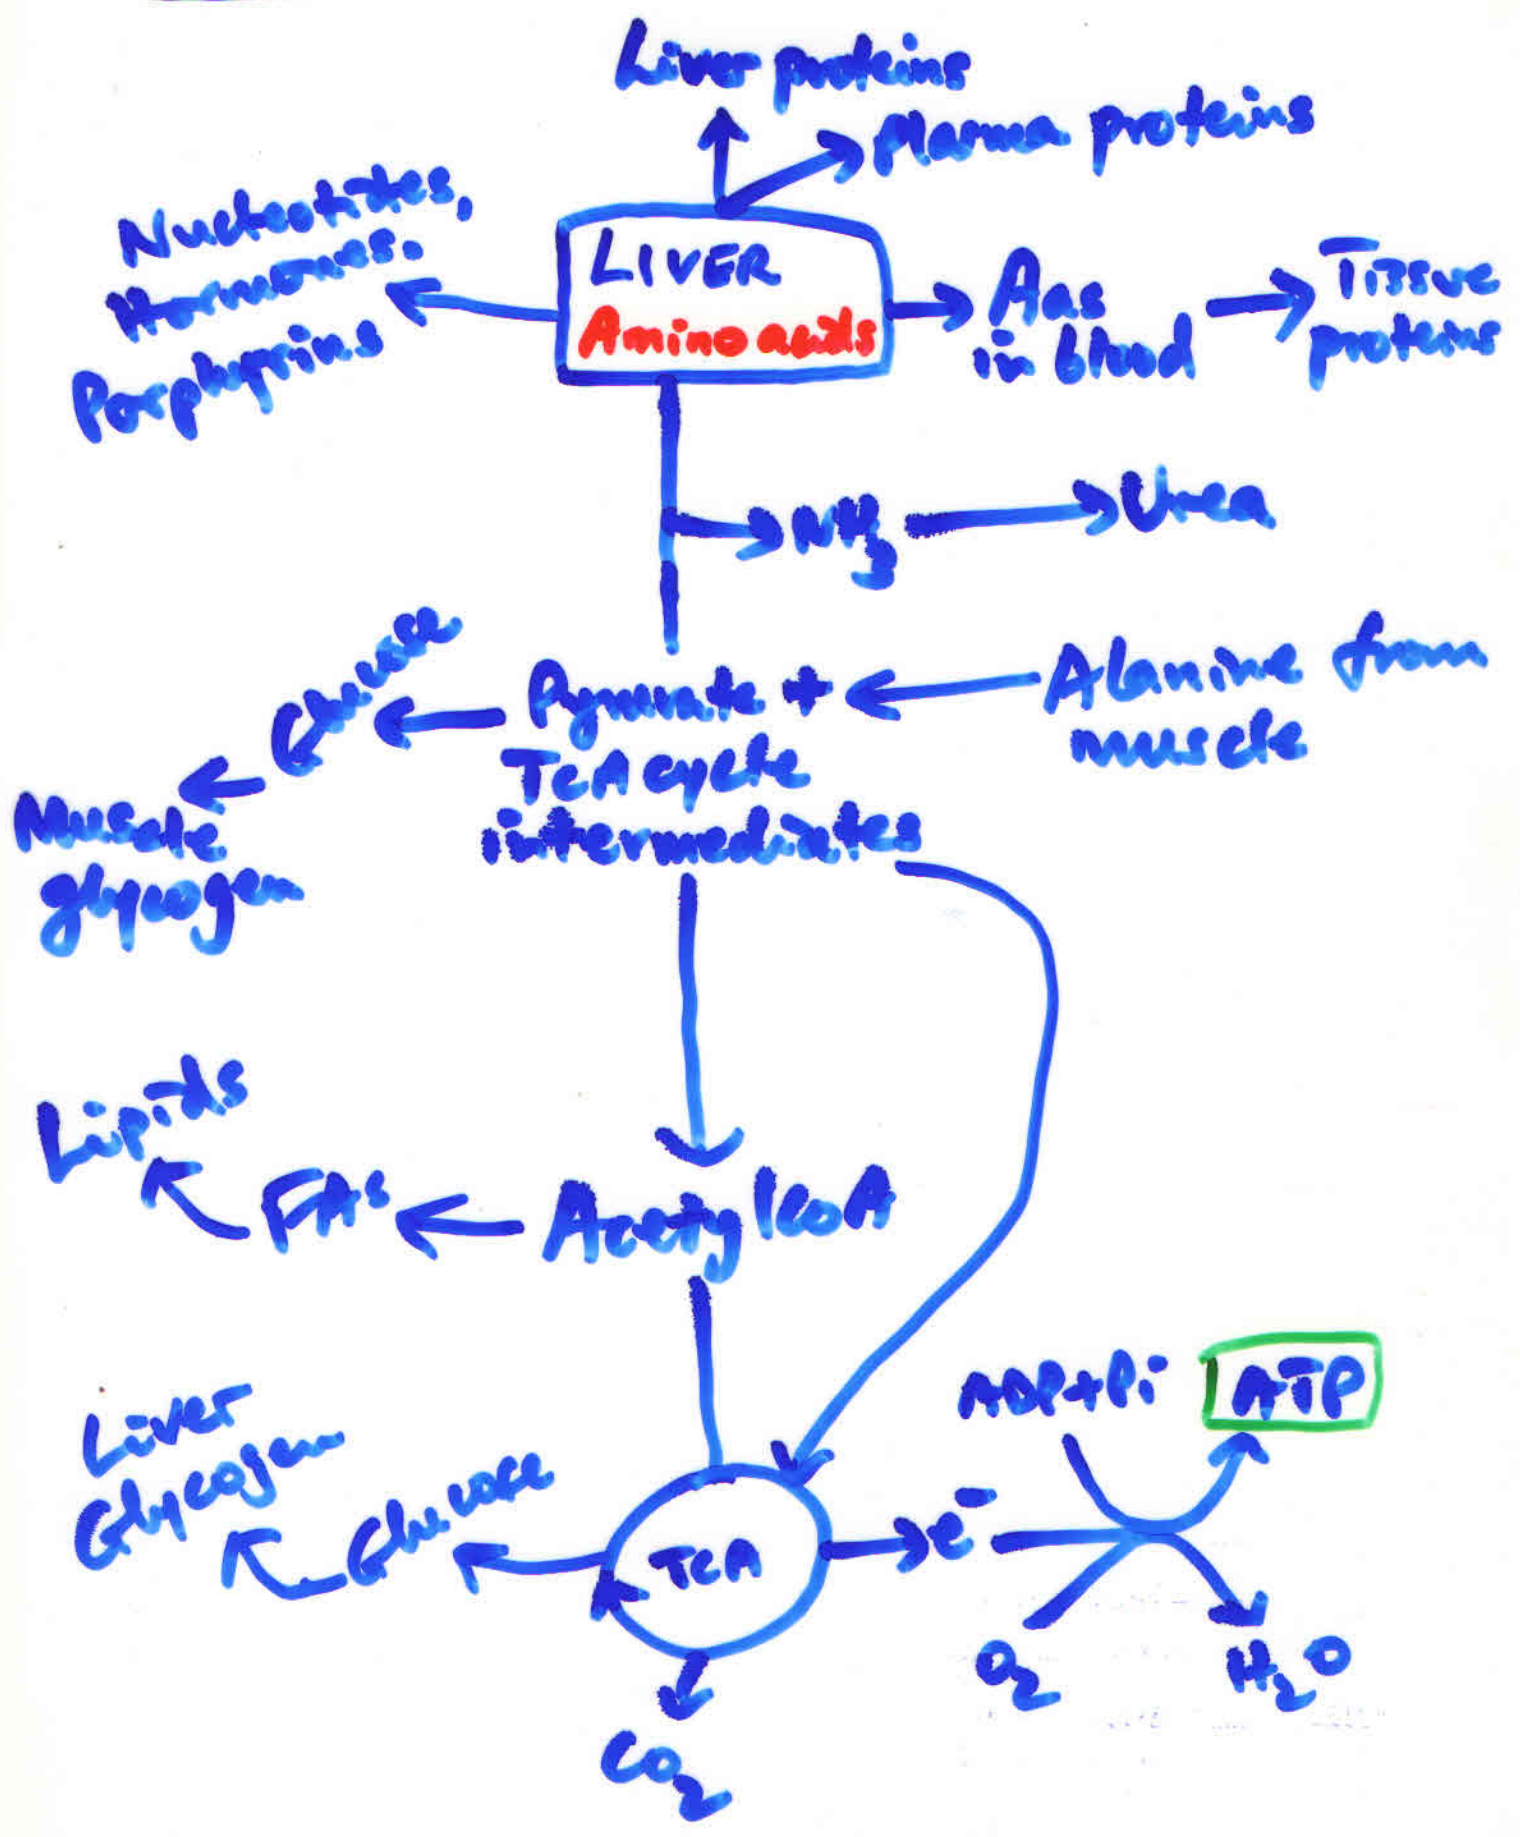 Liver proteins
Plasma proteins
Nucleotides,
Hormones.
Porphyrins
LIVER
Amino acids
Aas
in blood
Tissue
proteins
NH3
Urea
Glucose
Muscle
glycogen
Pyruvate +
TCA cycle
intermediates
Alanine from
muscle
Lipids
FAs
Acetyl CoA
ADP+Pi
ATP
Liver
Glycogen
Glucose
TCA
e-
O2
H2O
CO2